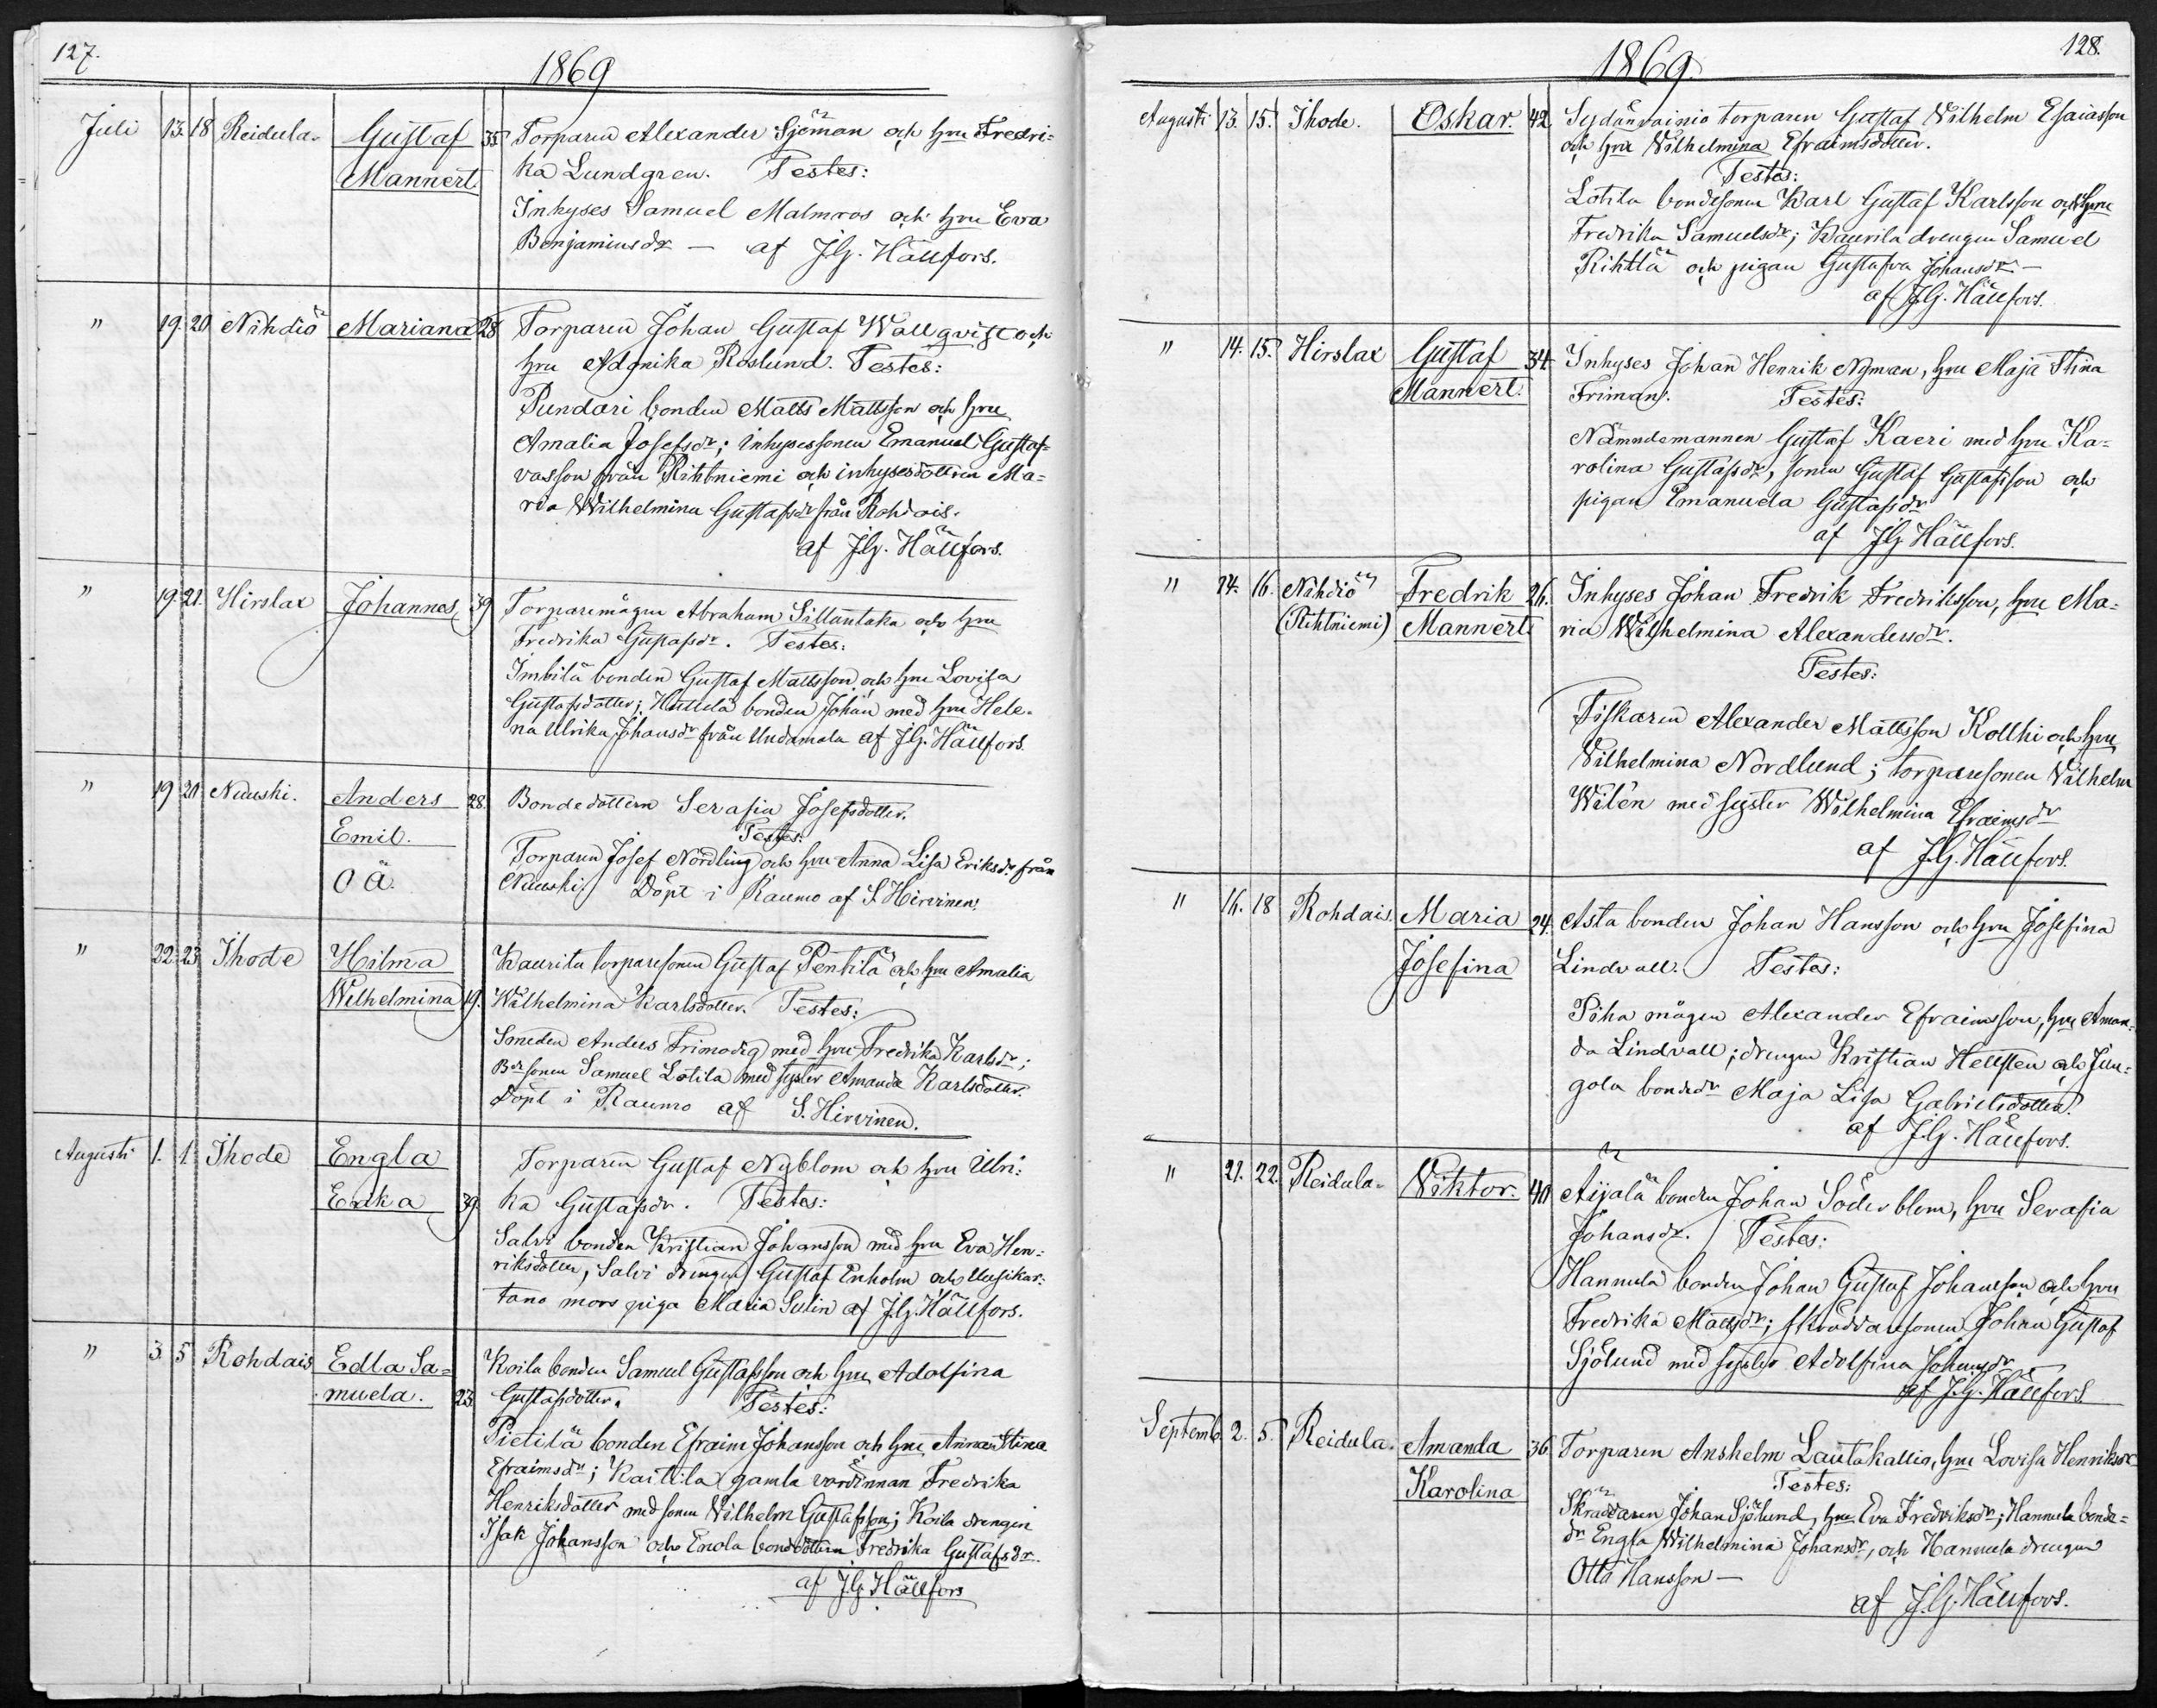 127.
1869
Juli 13. 18 Reidula. Gustaf 35 Torparen Alexander Sjöman och hru Fredri=
Mannert. ka Lundgren. Testes:
Inhyses Samuel Malmros och hru Eva
Benjaminsdr — af J.G. Hällfors.
" 19. 20. Nihdiö Mariana 28 Torparen Johan Gustaf Wallqvist och
hru Adonika Roslund. Testes:
Pundari bonden Matts Mattsson och hru
Amalia Josefsdr; inhysessonen Emanuel Gustaf=
vasson från Rihtniemi och inhysesdottren Ma=
ria Wilhelmina Gustafsdr från Rohdais.
af J.G. Hällfors.
" 19. 21. Hirslax Johannes 39 Torparemågen Abraham Sillantaka och hru
Fredrika Gustafsdr. Testes:
Imbilä bonden Gustaf Mattsson och hru Lovisa
Gustafsdotter; Huttula bonden Johan med hru Hele=
na Ulrika Johansdr från Undamala af J.G. Hällfors.
" 19 20 Nuuski. Anders 28. Bondedottern Serafia Josefsdotter.
Emil. Testes:
O ä. Torparen Josef Nordling och hru Anna Lisa Eriksdr från
Nuuski. Döpt i Raumo af S. Hirvinen.
" 22. 23. Ihode Hilma Kaurila torparesonen Gustaf Pentilä och hru Amalia
Wilhelmina 19. Wilhelmina Karlsdotter. Testes:
Smeden Anders Frimodig med hru Fredrika Karlsdr;
Bdesonen Samuel Lotila med syster Amanda Karlsdotter.
Döpt i Raumo af S. Hirvinen.
Augusti 1. 1. Ihode Engla Torparen Gustaf Nyblom och hru Ulri=
Erika 39. ka Gustafsdr. Testes:
Salvi bonden Kristian Johansson med hru Eva Hen=
riksdotter, Salvi drengen Gustaf Enholm och Uusikar=
tano mors piga Maria Sulin af J.G. Hällfors.
" 3. 5 Rohdais Edla Sa= Koila bonden Samuel Gustafsson och hru Adolfina
muela. 23. Gustafsdotter. Testes:
Pietilä bonden Efraim Johansson och hru Anna Stina
Efraimsdr; Kaittila gamla värdinnan Fredrika
Henriksdotter med sonen Wilhelm Gustafsson; Koila drengen
Isak Johansson och Enola bondedottern Fredrika Gustafsdr.
af J.G. Hällfors
128.
1869.
Augusti 13. 15. Ihode. Oskar. 42 Sydänvainio torparen Gustaf Wilhelm Esaiasson
och hru Wilhelmina Efraimsdotter.
Testes:
Lotila bondesonen Karl Gustaf Karlsson och hru
Fredrika Samuelsdr; Kaurila drengen Samuel
Rihtlä och pigan Gustafva Johansdr —
af J.G. Hällfors.
" 14. 15. Hirslax Gustaf 34. Inhyses Johan Henrik Nyman, hru Maja Stina
Mannert. Friman. Testes:
Nämndemannen Gustaf Kaeri med hru Ka=
rolina Gustafsdr, sonen Gustaf Gustafsson och
pigan Emanuela Gustafsdr
af J.G Hällfors.
" 14. 16. Nihdiö Fredrik 26. Inhyses Johan Fredrik Fredriksson, hru Ma=
(Rihtniemi) Mannert. ria Wilhelmina Alexandersdr.
Testes:
Fiskaren Alexander Mattsson Kollhi och hru
Wilhelmina Nordlund; torparesonen Wilhelm
Wilén med syster Wilhelmina Efraimsdr
af J.G. Hällfors.
" 16. 18 Rohdais. Maria 24. Asta bonden Johan Hansson och hru Josefina
Josefina Lindvall. Testes:
Piha mågen Alexander Efraimsson, hru Aman=
da Lindvall; drengen Kristian Hellsten och Jun=
gola bondedr Maja Lisa Gabrielsdotter.
af J.G. Hällfors.
" 21. 22. Reidula. Viktor. 40 Äijälä bonden Johan Söderblom, hru Serafia
Johansdr. Testes:
Hannula bonden Johan Gustaf Johansson och hru
Fredrika Mattsdr; skräddaresonen Johan Gustaf
Sjölund med syster Adolfina Johansdr
af J.G. Hällfors
Septemb. 2. 5. Reidula. Amanda 36. Torparen Anshelm Lautakallio, hru Lovisa Henriksdr
Karolina Testes:
Skräddaren Johan Sjölund, hru Eva Fredriksdr; Hannula bonde=
dr Engla Wilhelmina Johansdr, och Hannula drengen
Otto Hansson —
af J.G. Hällfors.